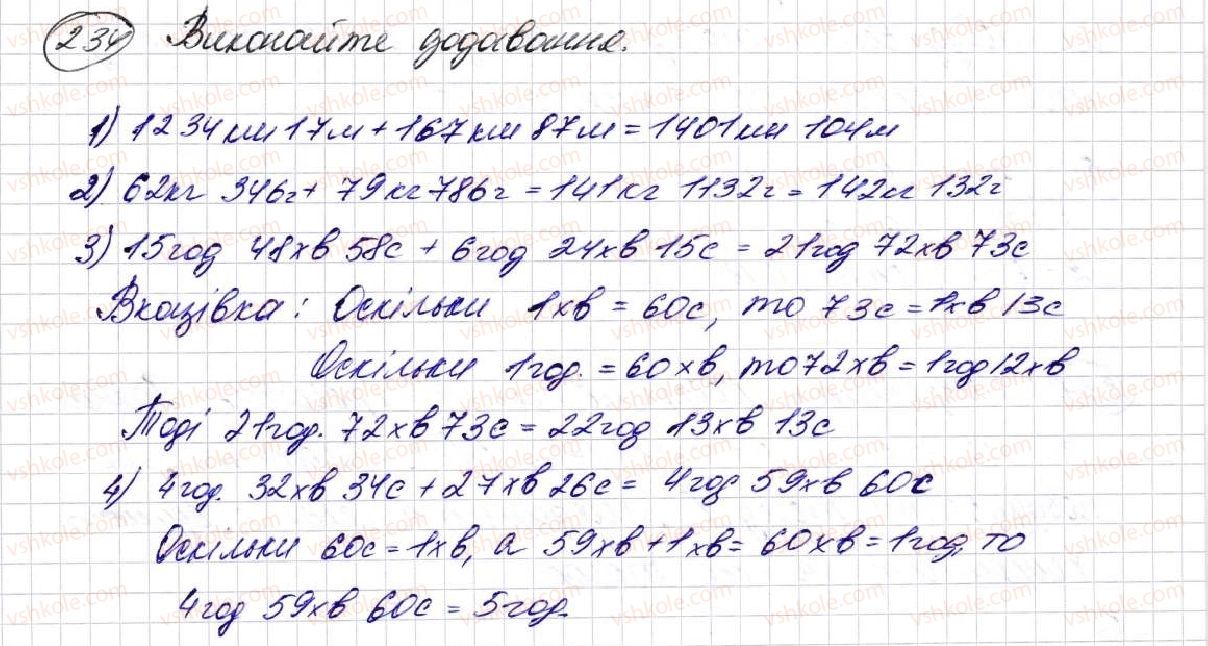 234 Виконайте додавання.
1) 1234км 17м + 167км 87м = 1401км 104м
2) 62кг 346г + 79кг 786г = 141кг 1132г = 142кг 132г
3) 15год 48хв 58с + 6год 24хв 15с = 21год 72хв 73с
Вказівка: Оскільки 1хв = 60с, то 73с = 1хв 13с
Оскільки 1год. = 60хв, то 72хв = 1год 12хв
Тоді 21год. 72хв 73с = 22год 13хв 13с
4) 4год. 32хв 34с + 27хв 26с = 4год 59хв 60с
Оскільки 60с = 1хв, а 59хв + 1хв = 60хв = 1год, то
4год 59хв 60с = 5год.